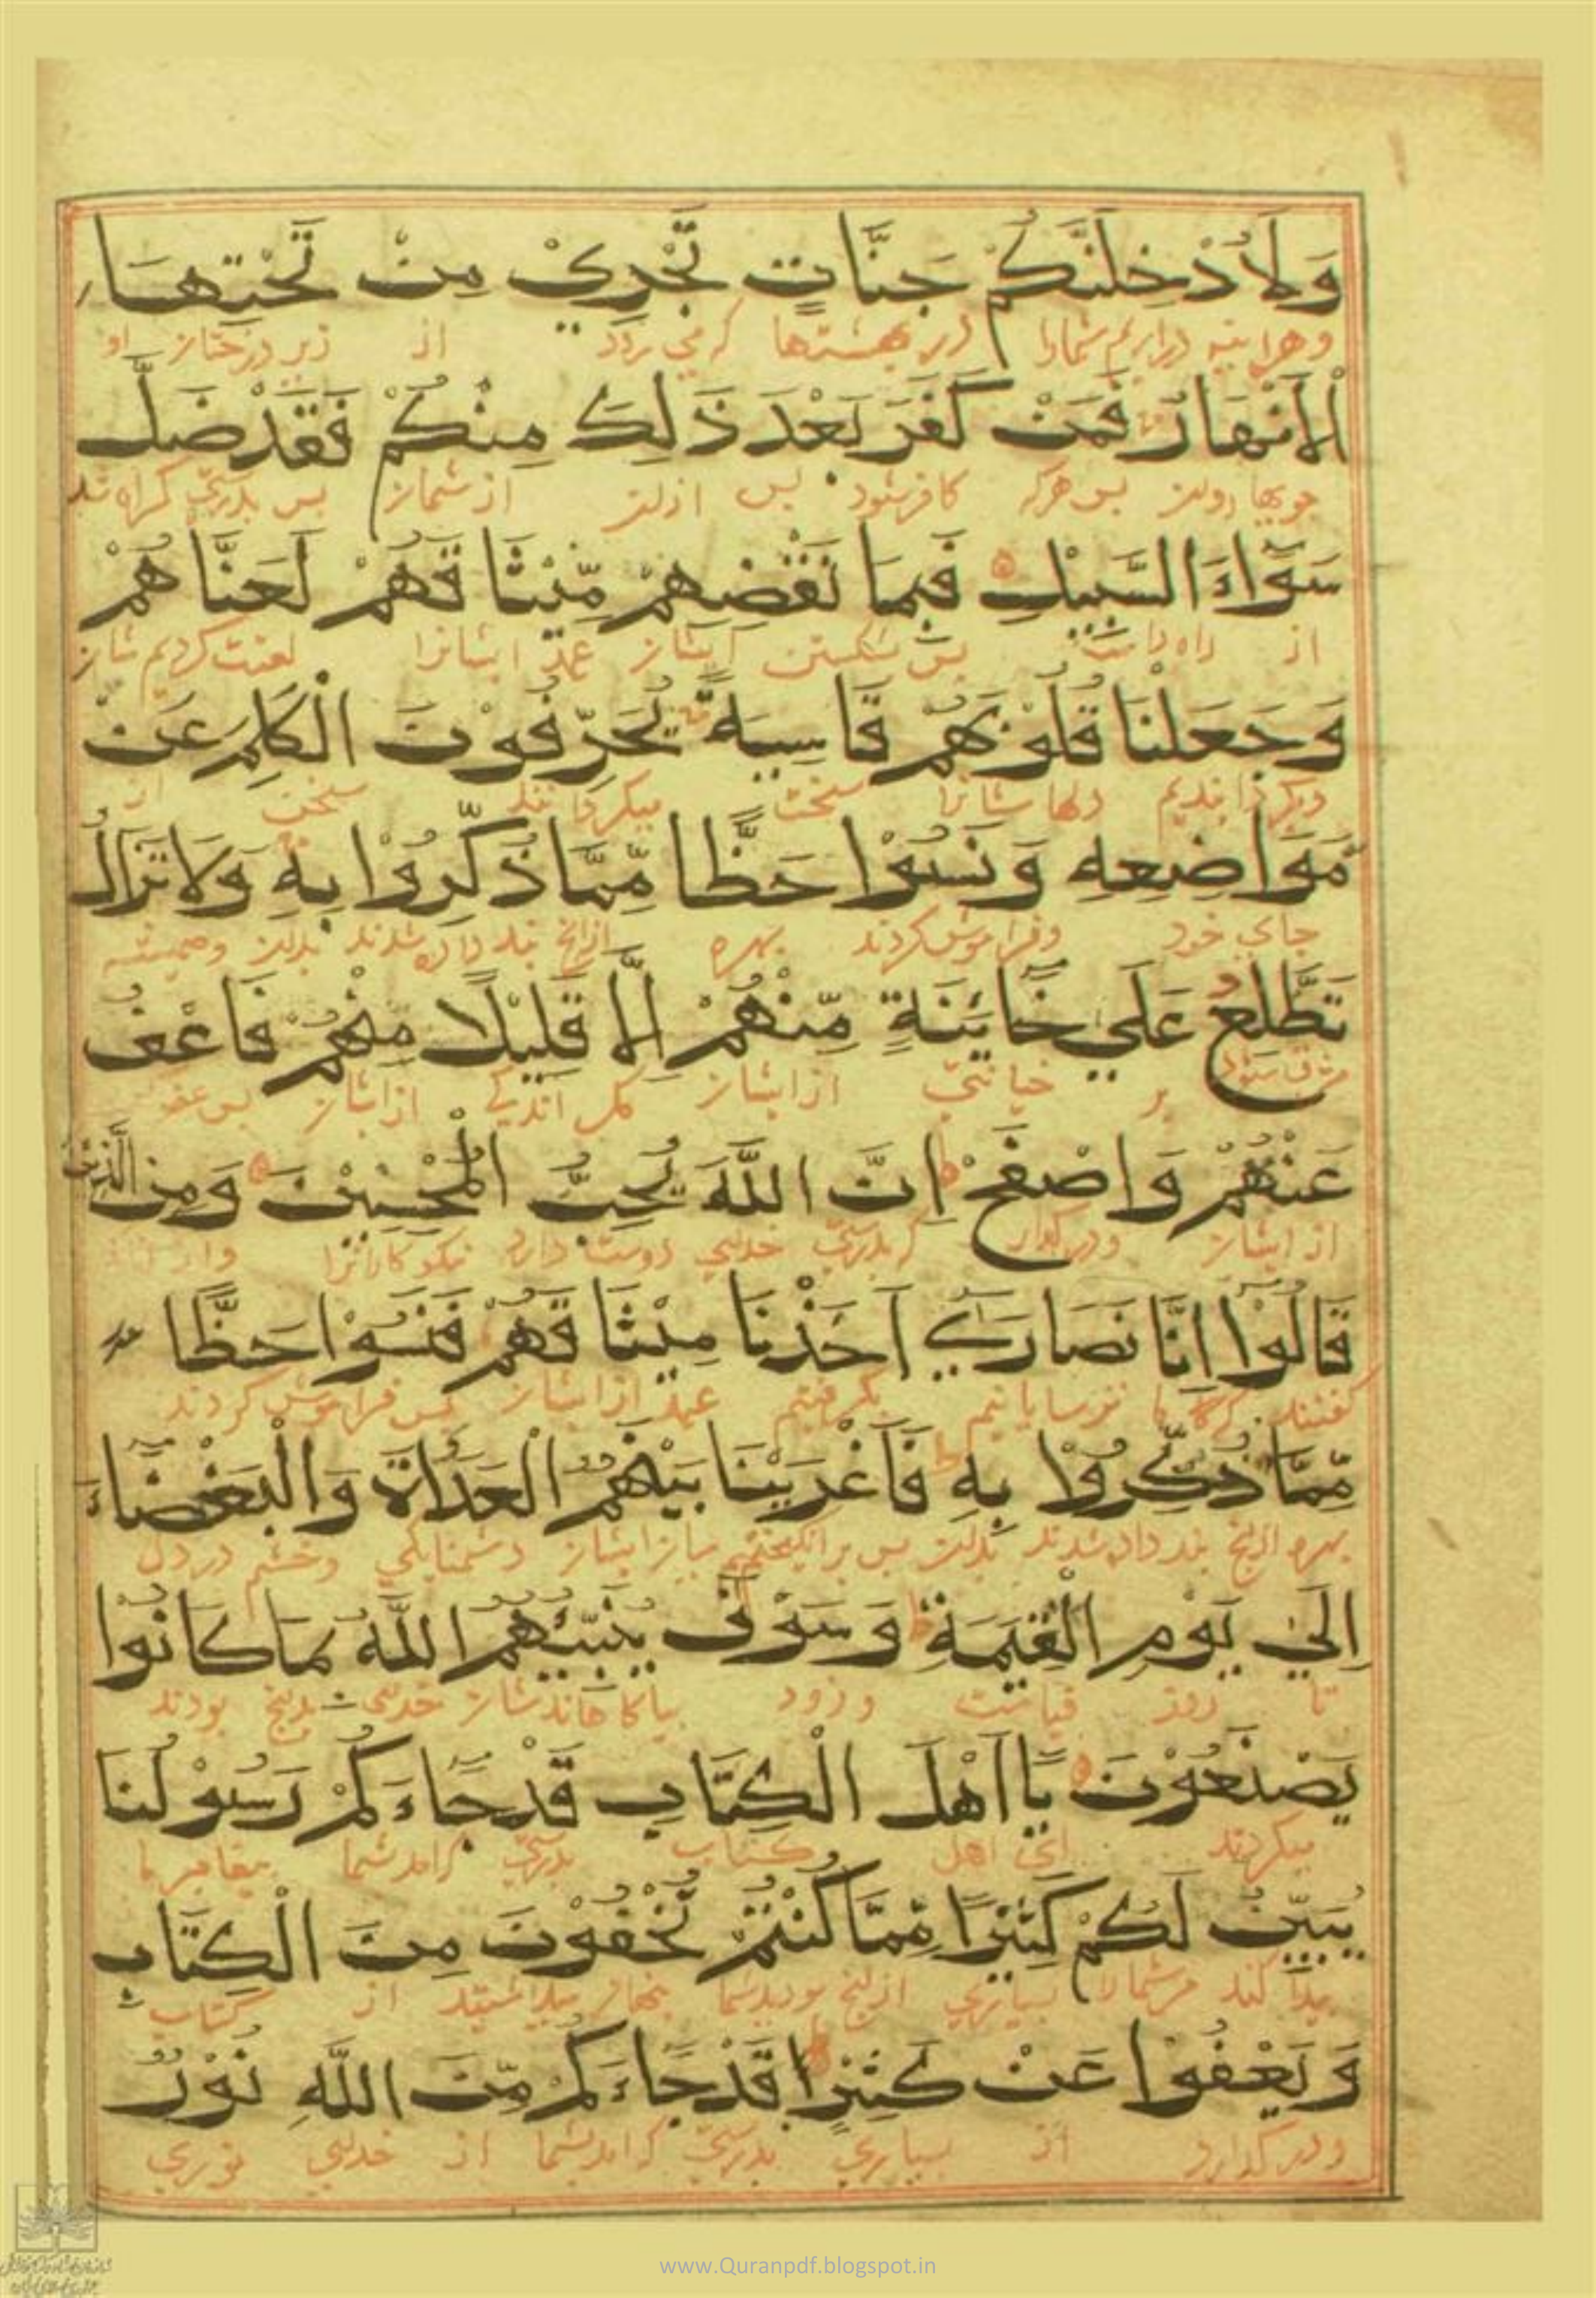 وَلَاُدْخِلَنَّكُمْ جَنَّاتٍ تَجْرِيْ مِنْ تَحْتِهَا
وهراینه درارم شمارا در بهشتها که می رود از زیر درختان او
الْاَنْهَارُ فَمَنْ كَفَرَ بَعْدَ ذٰلِكَ مِنْكُمْ فَقَدْ ضَلَّ
جویها روان پس هرکه کافر شود پس ازان از شمان پس بدرستی گمراه شد
سَوَآءَ السَّبِيْلِ فَبِمَا نَقْضِهِمْ مِّيْثَاقَهُمْ لَعَنَّاهُمْ
از راه راست پس شکستن ایشان عهد ایشانرا لعنت کردیم شان
وَجَعَلْنَا قُلُوْبَهُمْ قَاسِيَةً يُحَرِّفُوْنَ الْكَلِمَ عَنْ
وبگردانیدیم دلها شانرا سخت میگردانند سخن از
مَّوَاضِعِهِ وَنَسُوْا حَظًّا مِّمَّا ذُكِّرُوْا بِهِ وَلَا تَزَالُ
جای خود وفراموش کردند بهره ازانچ پند داده شدند بدان وهمیشه
تَطَّلِعُ عَلٰي خَآئِنَةٍ مِّنْهُمْ اِلَّا قَلِيْلًا مِنْهُمْ فَاعْفُ
بر خیانتی از ایشان مگر اندکی از ایشان پس عفو
عَنْهُمْ وَاصْفَحْ اِنَّ اللَّهَ يُحِبُّ الْمُحْسِنِيْنَ وَمِنَ الَّذِيْنَ
از ایشان ودرگذار که بدرستی خدای دوست دارد نیکو کارانرا
قَالُوْا اِنَّا نَصَارٰي اَخَذْنَا مِيْثَاقَهُمْ فَنَسُوْا حَظًّا
گفتند که ما ترسایانیم بگرفتیم عهد از ایشان پس فراموش کردند
مِّمَّا ذُكِّرُوْا بِهِ فَاَغْرَيْنَا بَيْنَهُمُ الْعَدَاوَةَ وَالْبَغْضَآءَ
بهره ازانچ پند داده شدند بدان پس برانگیختیم میان ایشان دشمنایگی وخشم در دل
اِلٰي يَوْمِ الْقِيٰمَةِ وَسَوْفَ يُنَبِّئُهُمُ اللَّهُ بِمَا كَانُوْا
تا روز قیامت وزود بیاگاهاند شان خدای بدانچ بودند
يَصْنَعُوْنَ يَا اَهْلَ الْكِتَابِ قَدْ جَآءَكُمْ رَسُوْلُنَا
میکردند ای اهل کتاب بدرستی که آمد شما پیغامبر ما
يُبَيِّنُ لَكُمْ كَثِيْرًا مِّمَّا كُنْتُمْ تُخْفُوْنَ مِنَ الْكِتَابِ
پیدا کند مر شمارا بسیاری ازانچ بودید شما از کتاب
وَيَعْفُوْا عَنْ كَثِيْرٍ قَدْ جَآءَكُمْ مِّنَ اللَّهِ نُوْرٌ
ودرگذارد از بسیاری بدرستی که آمد بشما از خدای نوری
www.Quranpdf.blogspot.in